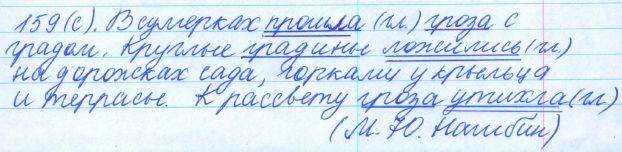 159(с). В сумерках прошла (гл.) гроза с
градом. Круглые градины ложились (гл.)
на дорожках сада, горками у крыльца
и террасы. К рассвету гроза утихла (гл.)
(М. Ю. Нагибин)